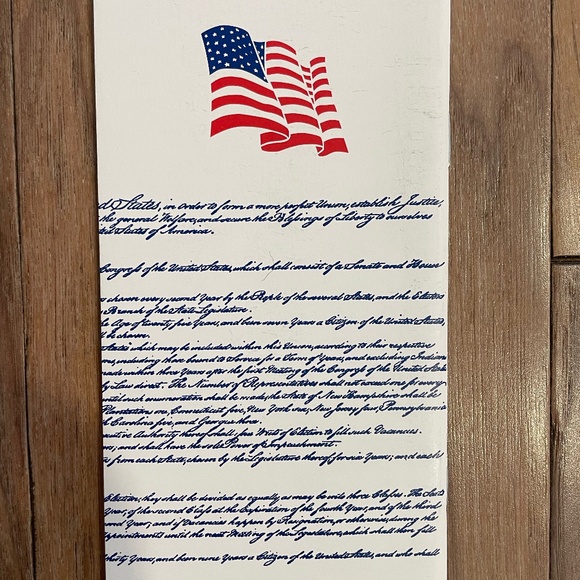 d States, in order to form a more perfect Union, establish Justice,
the general Welfare, and secure the Blessings of Liberty to ourselves
ted States of America.
Congress of the United States, which shall consist of a Senate and House
chosen every second Year by the People of the several States, and the Electors
Branch of the State Legislature.
the Age of twenty five Years, and been seven Years a Citizen of the United States,
be chosen.
States which may be included within this Union, according to their respective
ons, including those bound to Service for a Term of Years, and excluding Indians
made within three Years after the first Meeting of the Congress of the United State
by Law direct. The Number of Representatives shall not exceed one for every
until such enumeration shall be made, the State of New Hampshire shall be
Plantations one, Connecticut five, New York six, New Jersey four, Pennsylvania
Carolina five, and Georgia three.
cutive Authority thereof shall issue Writs of Election to fill such Vacancies.
ers; and shall have the sole Power of Impeachment.
from each State, chosen by the Legislature thereof, for six Years; and each
Election, they shall be divided as equally as may be into three Classes. The Seats
Year, of the second Class at the Expiration of the fourth Year, and of the third
ond Year; and if Vacancies happen by Resignation, or otherwise, during the
ppointments until the next Meeting of the Legislature, which shall then fill
thirty Years, and been nine Years a Citizen of the United States, and who shall